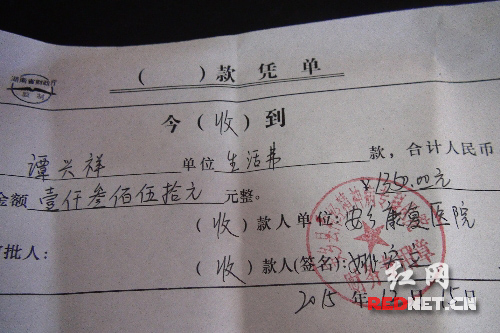 湖南省财政厅
( ) 款 凭 单
今 ( 收 ) 到
谭兴祥 单位 生活费 款，合计人民币
金额 壹仟叁佰伍拾元 元整。 ¥1350.00元
( 收 ) 款人单位: 安乡康复医院
审批人:
( 收 ) 款人(签名):
2015 年 12 月 15 日
红网
REDNET.CN